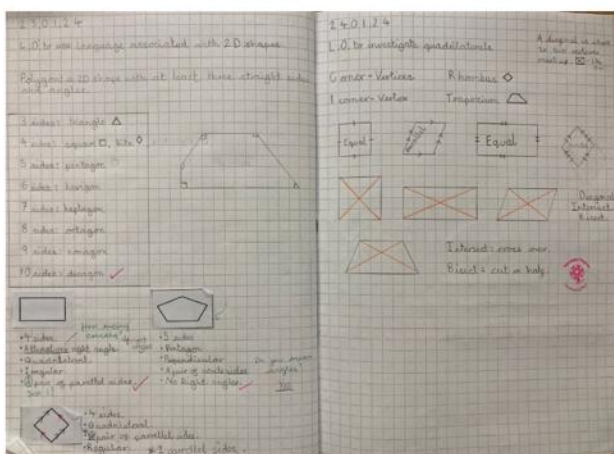 23.01.24
L.O: to use language associated with 2D shapes
Polygon: a 2D shape with at least three straight sides
and angles.
3 sides: triangle
4 sides: square, kite
5 sides: pentagon
6 sides: hexagon
7 sides: heptagon
8 sides: octagon
9 sides: nonagon
10 sides: decagon
• 4 sides
right angle
• Quadrilateral
• Irregular
pair of parallel sides
• 5 sides
• Pentagon
• Perpendicular
• No Right angles
Do you mean
angles?
Yes
• 4 sides
• Quadrilateral
pair of parallel sides
• Regular
24.01.24
L.O: to investigate quadrilaterals
Corner = Vertices
Rhombus
1 corner = Vertex
Trapezium
A diagonal is where
two vertices
meet up.
Equal
Parallel
Equal
Diagonal
Intersect
Bisect
Intersect = cross over.
Bisect = cut in half.